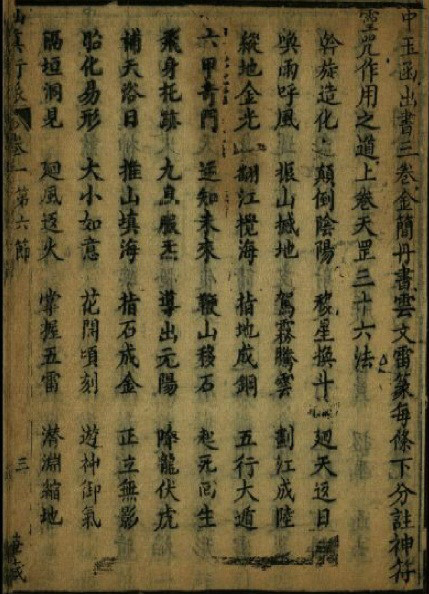 中玉函出書三卷金簡丹書雲文雷篆每條下分註神符
靈咒作用之道上卷天罡三十六法
斡旋造化 顛倒陰陽 移星換斗 廻天返日
喚雨呼風 振山撼地 駕霧騰雲 劃江成陸
縱地金光 翻江攪海 指地成鋼 五行大遁
六甲奇門 逆知未來 鞭山移石 起死囘生
飛身托跡 九息服炁 導出元陽 降龍伏虎
補天浴日 推山填海 指石成金 正立無影
胎化易形 大小如意 花開頃刻 遊神御氣
隔垣洞見 廻風返火 掌握五雷 潛淵縮地
卷一第六節 三